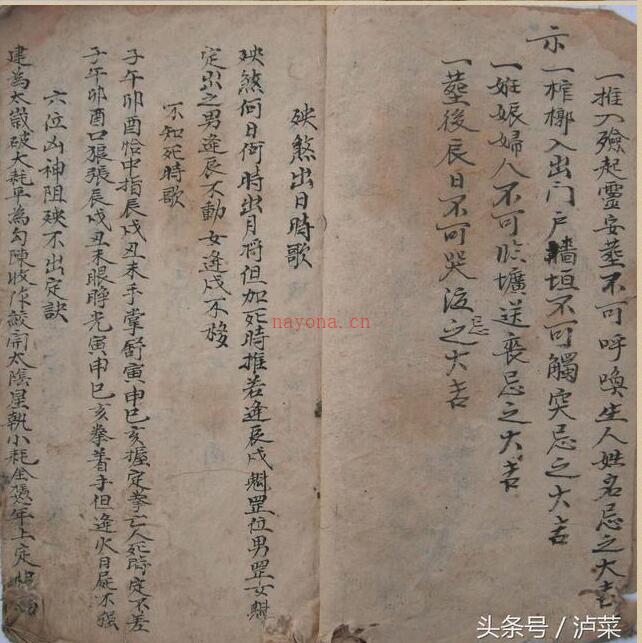 一推入殮起靈安葬不可呼喚生人姓名忌之大吉
示一棺槨入出门户牆垣不可觸突忌之大吉
一妊娠婦人不可臨壙送喪忌之大吉
一塟後辰日不可哭泣忌之大吉
殃煞出日時歌
殃煞何日何時出月將但加死時推若逢辰戌魁罡位男罡女魁
定出之男逢辰不動女逢戌不移
不知死時歌
子午卯酉恰中指辰戌丑未手掌舒寅申巳亥握定拳亡人死時定不差
子午卯酉口狠張辰戌丑未眼睁光寅申巳亥拳着手但逢火日屍不强
六位凶神阻殃不出定訣
建為太歲破大耗平為勾陳收陳敲開太陰星執小耗全憑年上定
nayona.cn
头条号／泸菜